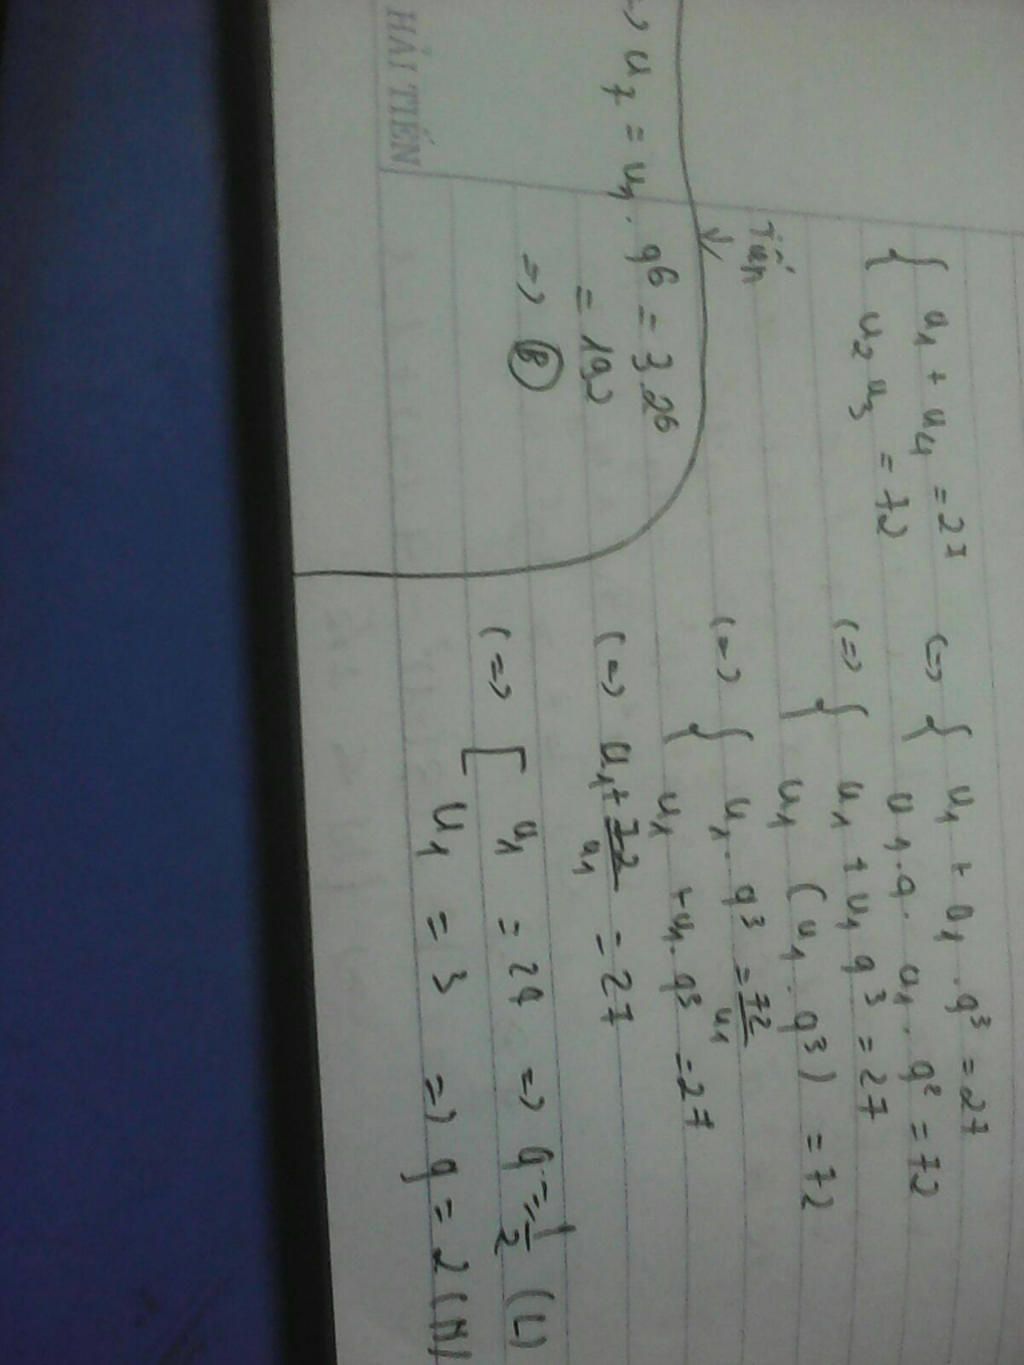 { u1 + u4 = 27
u2 u3 = 72
(=> { u1 + u1 . q³ = 27
u1 . q . u1 . q² = 72
(=> { u1 + u1 q³ = 27
u1 (u1 . q³) = 72
(=> { u1 . q³ = 72/u1
u1 + u1 . q³ = 27
(=> u1 + 72/u1 = 27
(=> [ u1 = 24 => q = 1/2 (L)
u1 = 3 => q = 2 (N)
Tiến
=> u7 = u1 . q⁶ = 3.2⁶
= 192
=> B
HẢI TIẾN